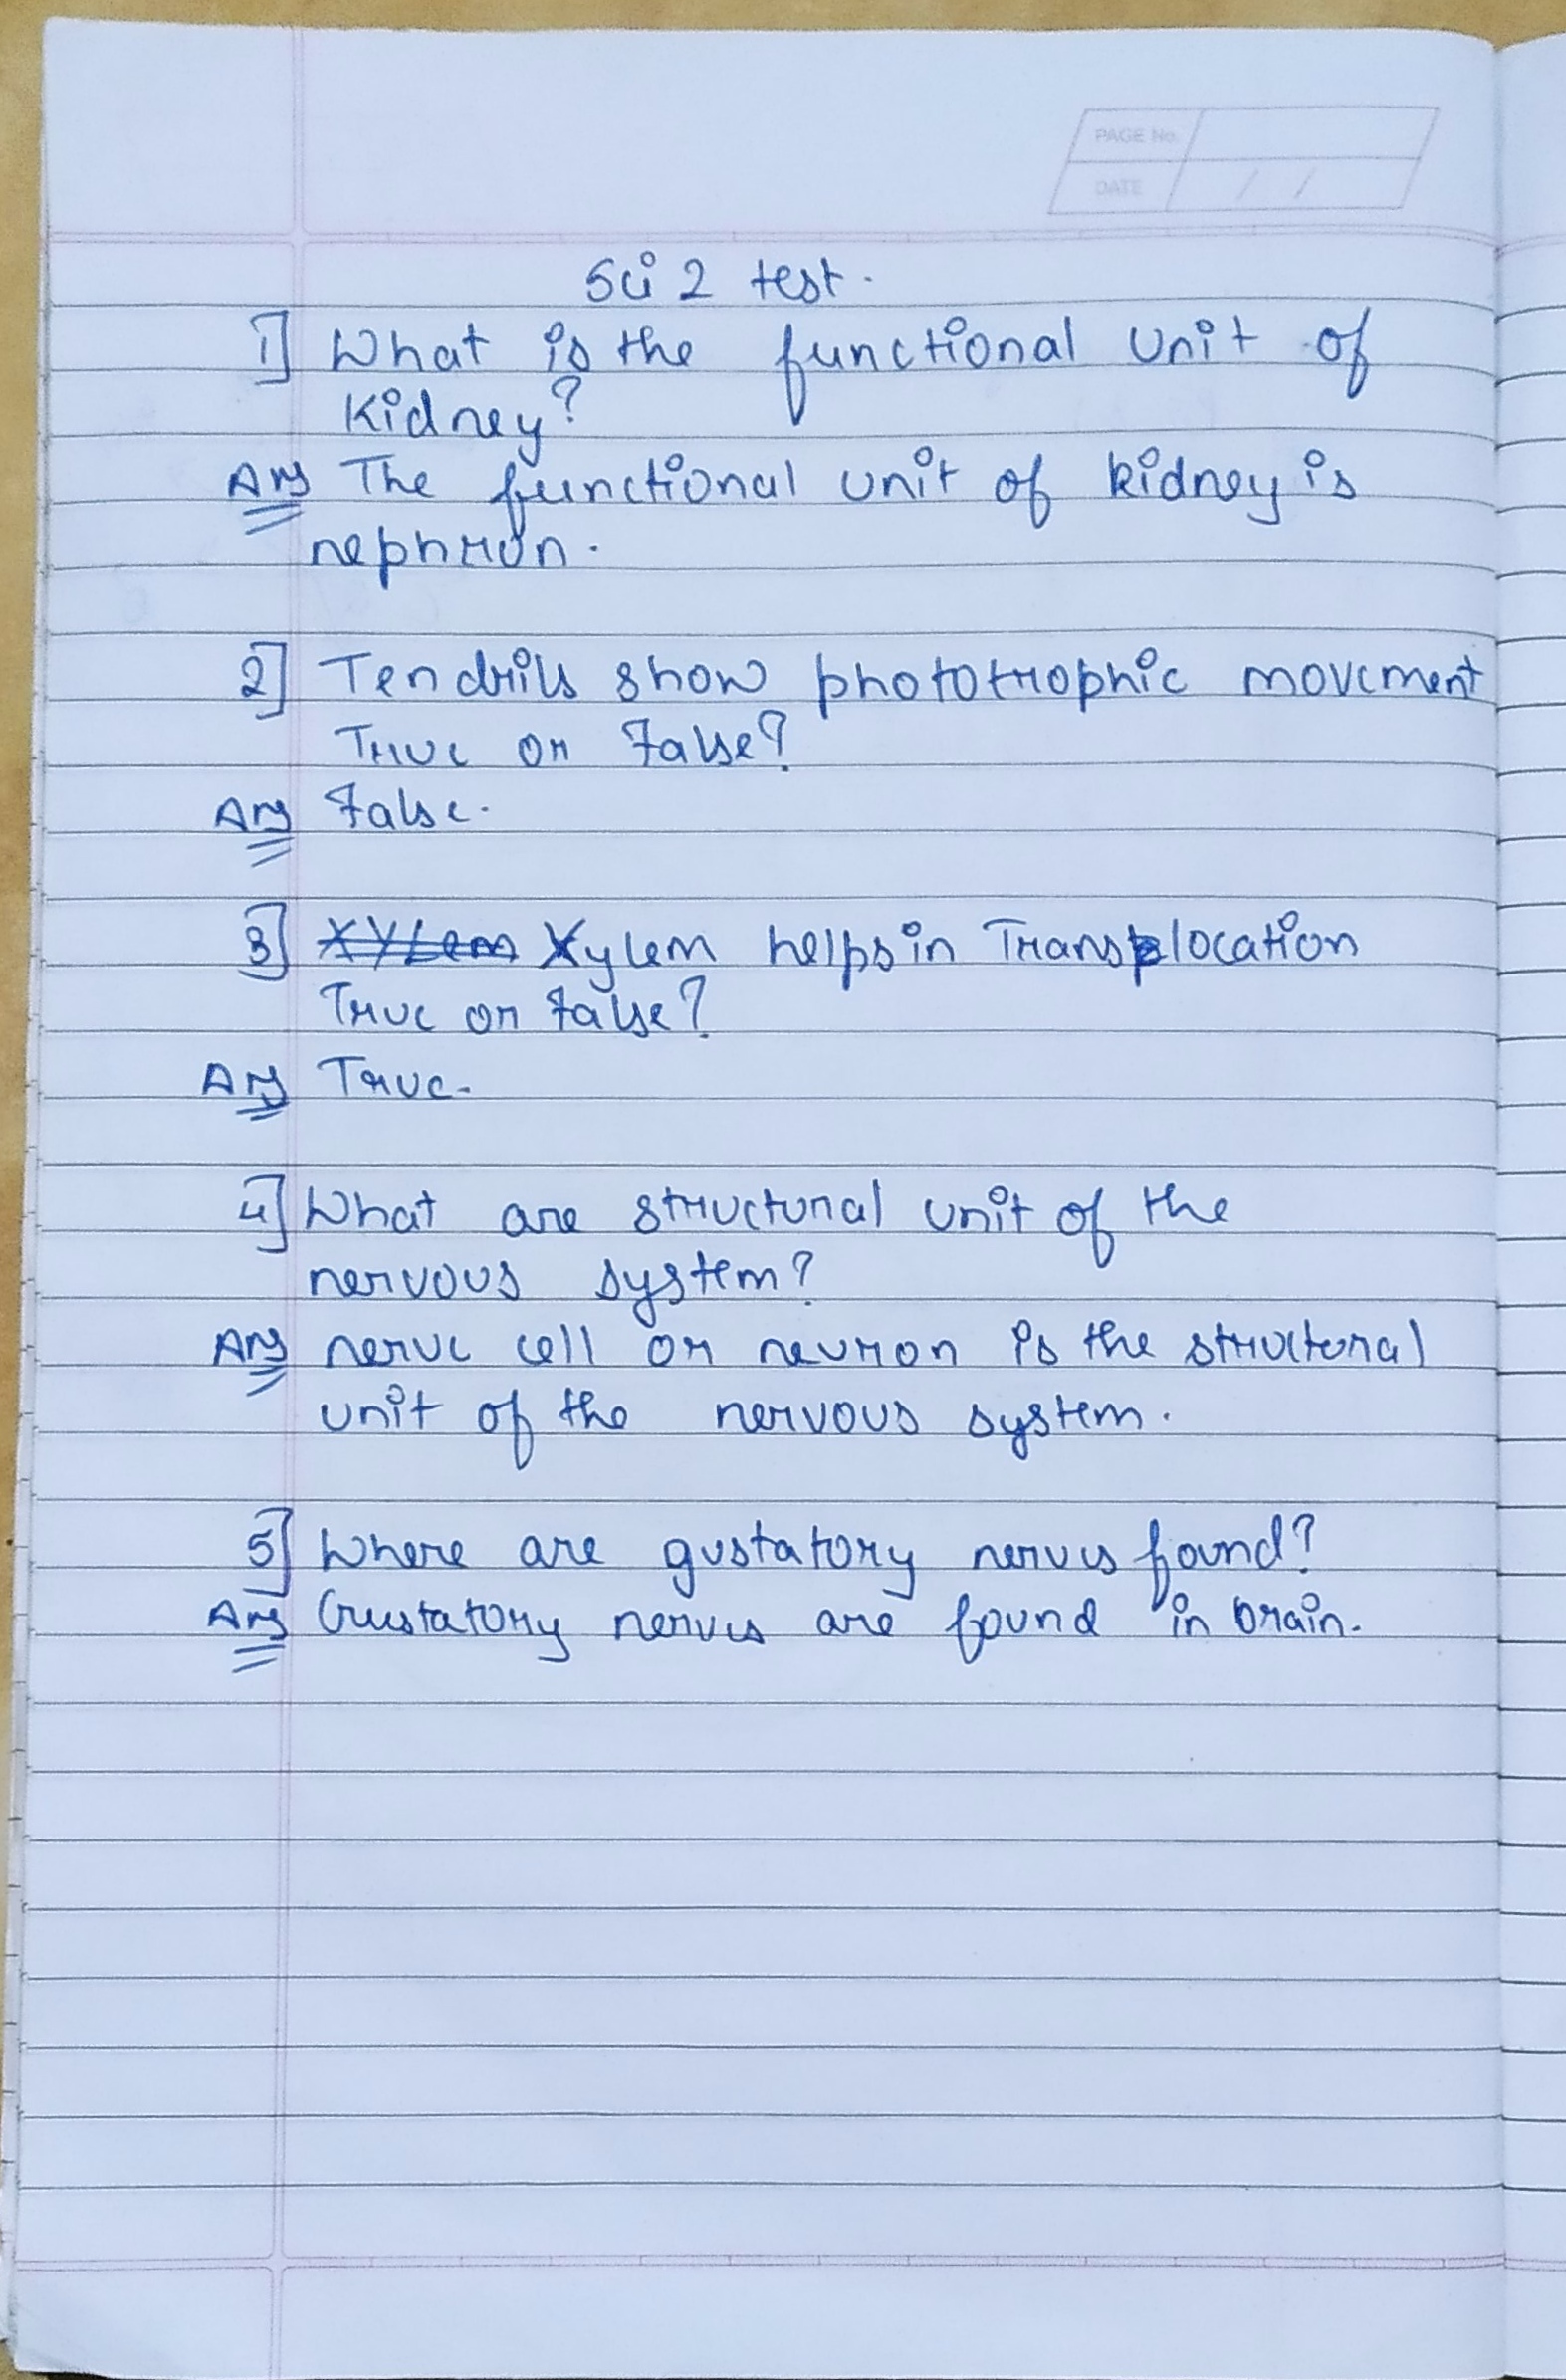 PAGE No.
DATE / /
Sci 2 test.
1] What is the functional unit of
kidney?
Ans The functional unit of kidney is
nephron.
2] Tendrils show phototrophic movement
True or False?
Ans False.
3] Xylem Xylem helps in Translocation
True or false?
Ans True.
4] What are structural unit of the
nervous system?
Ans nerve cell or neuron is the structural
unit of the nervous system.
5] Where are gustatory nerves found?
Ans Gustatory nerves are found in brain.